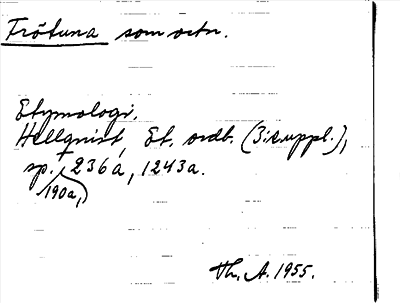 Frötuna som ortn.
Etymologi.
Hellquist, Et. ordb. (3:e uppl.),
sp. 236 a, 1243 a.
190a,
Th. A. 1955.